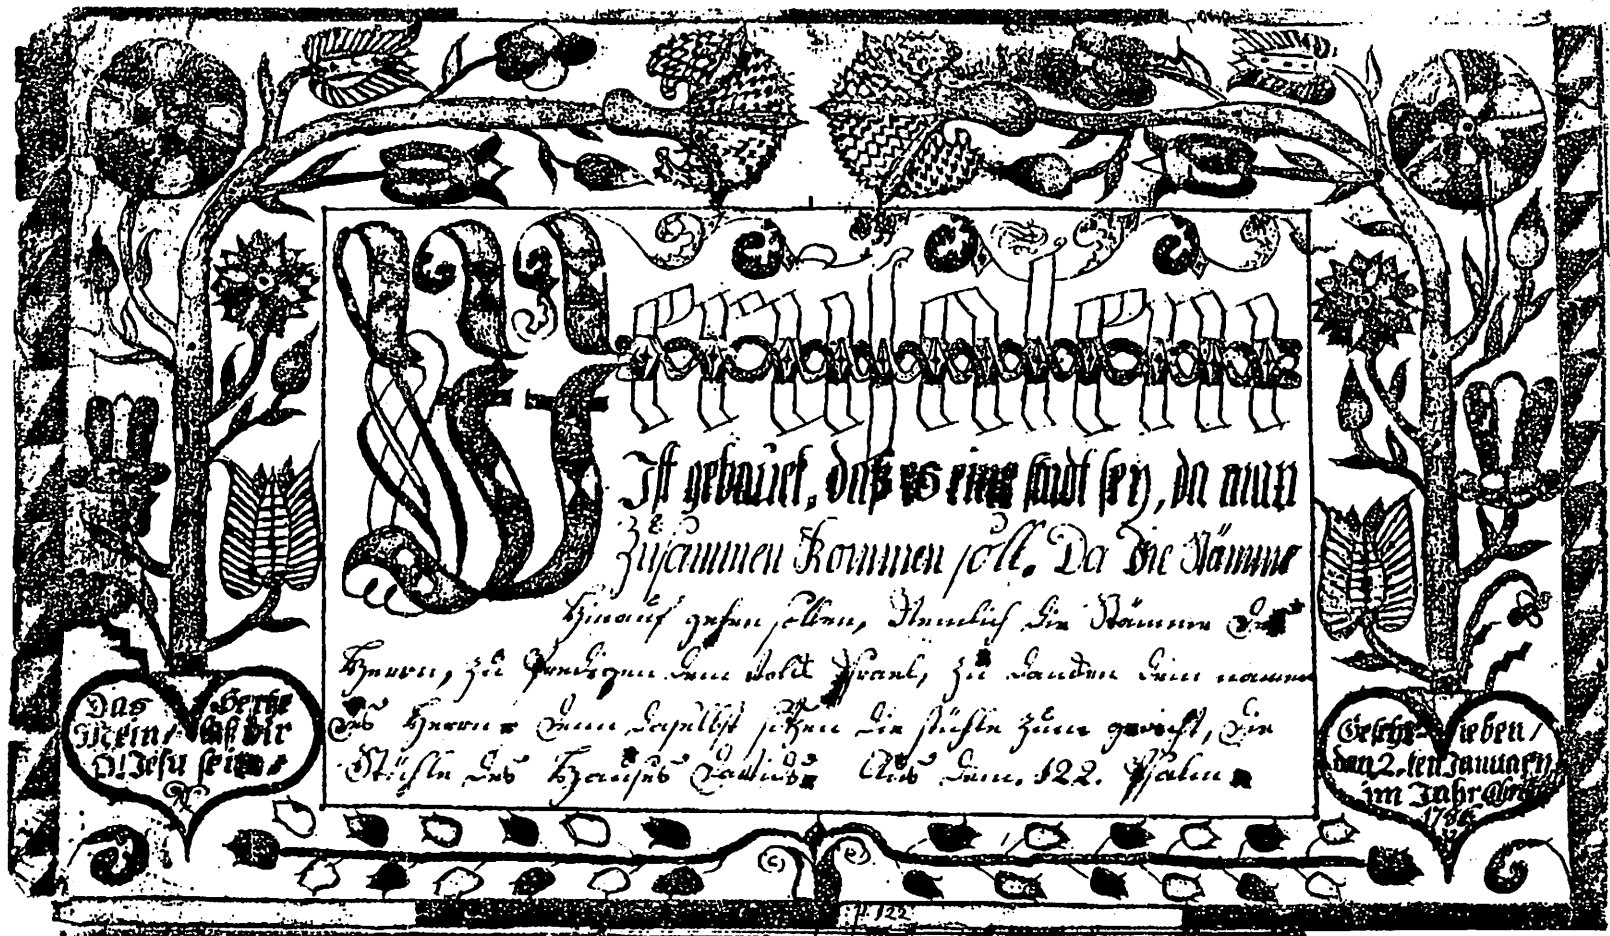 Jerusalem
Ist gebauet, daß es eine stadt sey, da man
Zusammen Kommen soll. Da die Stämme
Hinauf gehen sollen, Nemlich die Stämme des
Herrn, zu Predigen dem volck Israel, zu dancken dem namen
des Herrn. Denn daselbst sitzen die stühle zum gericht, die
Stühle des Hauses Davids. Aus dem. 122. Psalm.
Das Hertze
Mein, laß dir
O! Jesu seyn.
Geschrieben/
den 2.ten Januarÿ
im Jahr
122